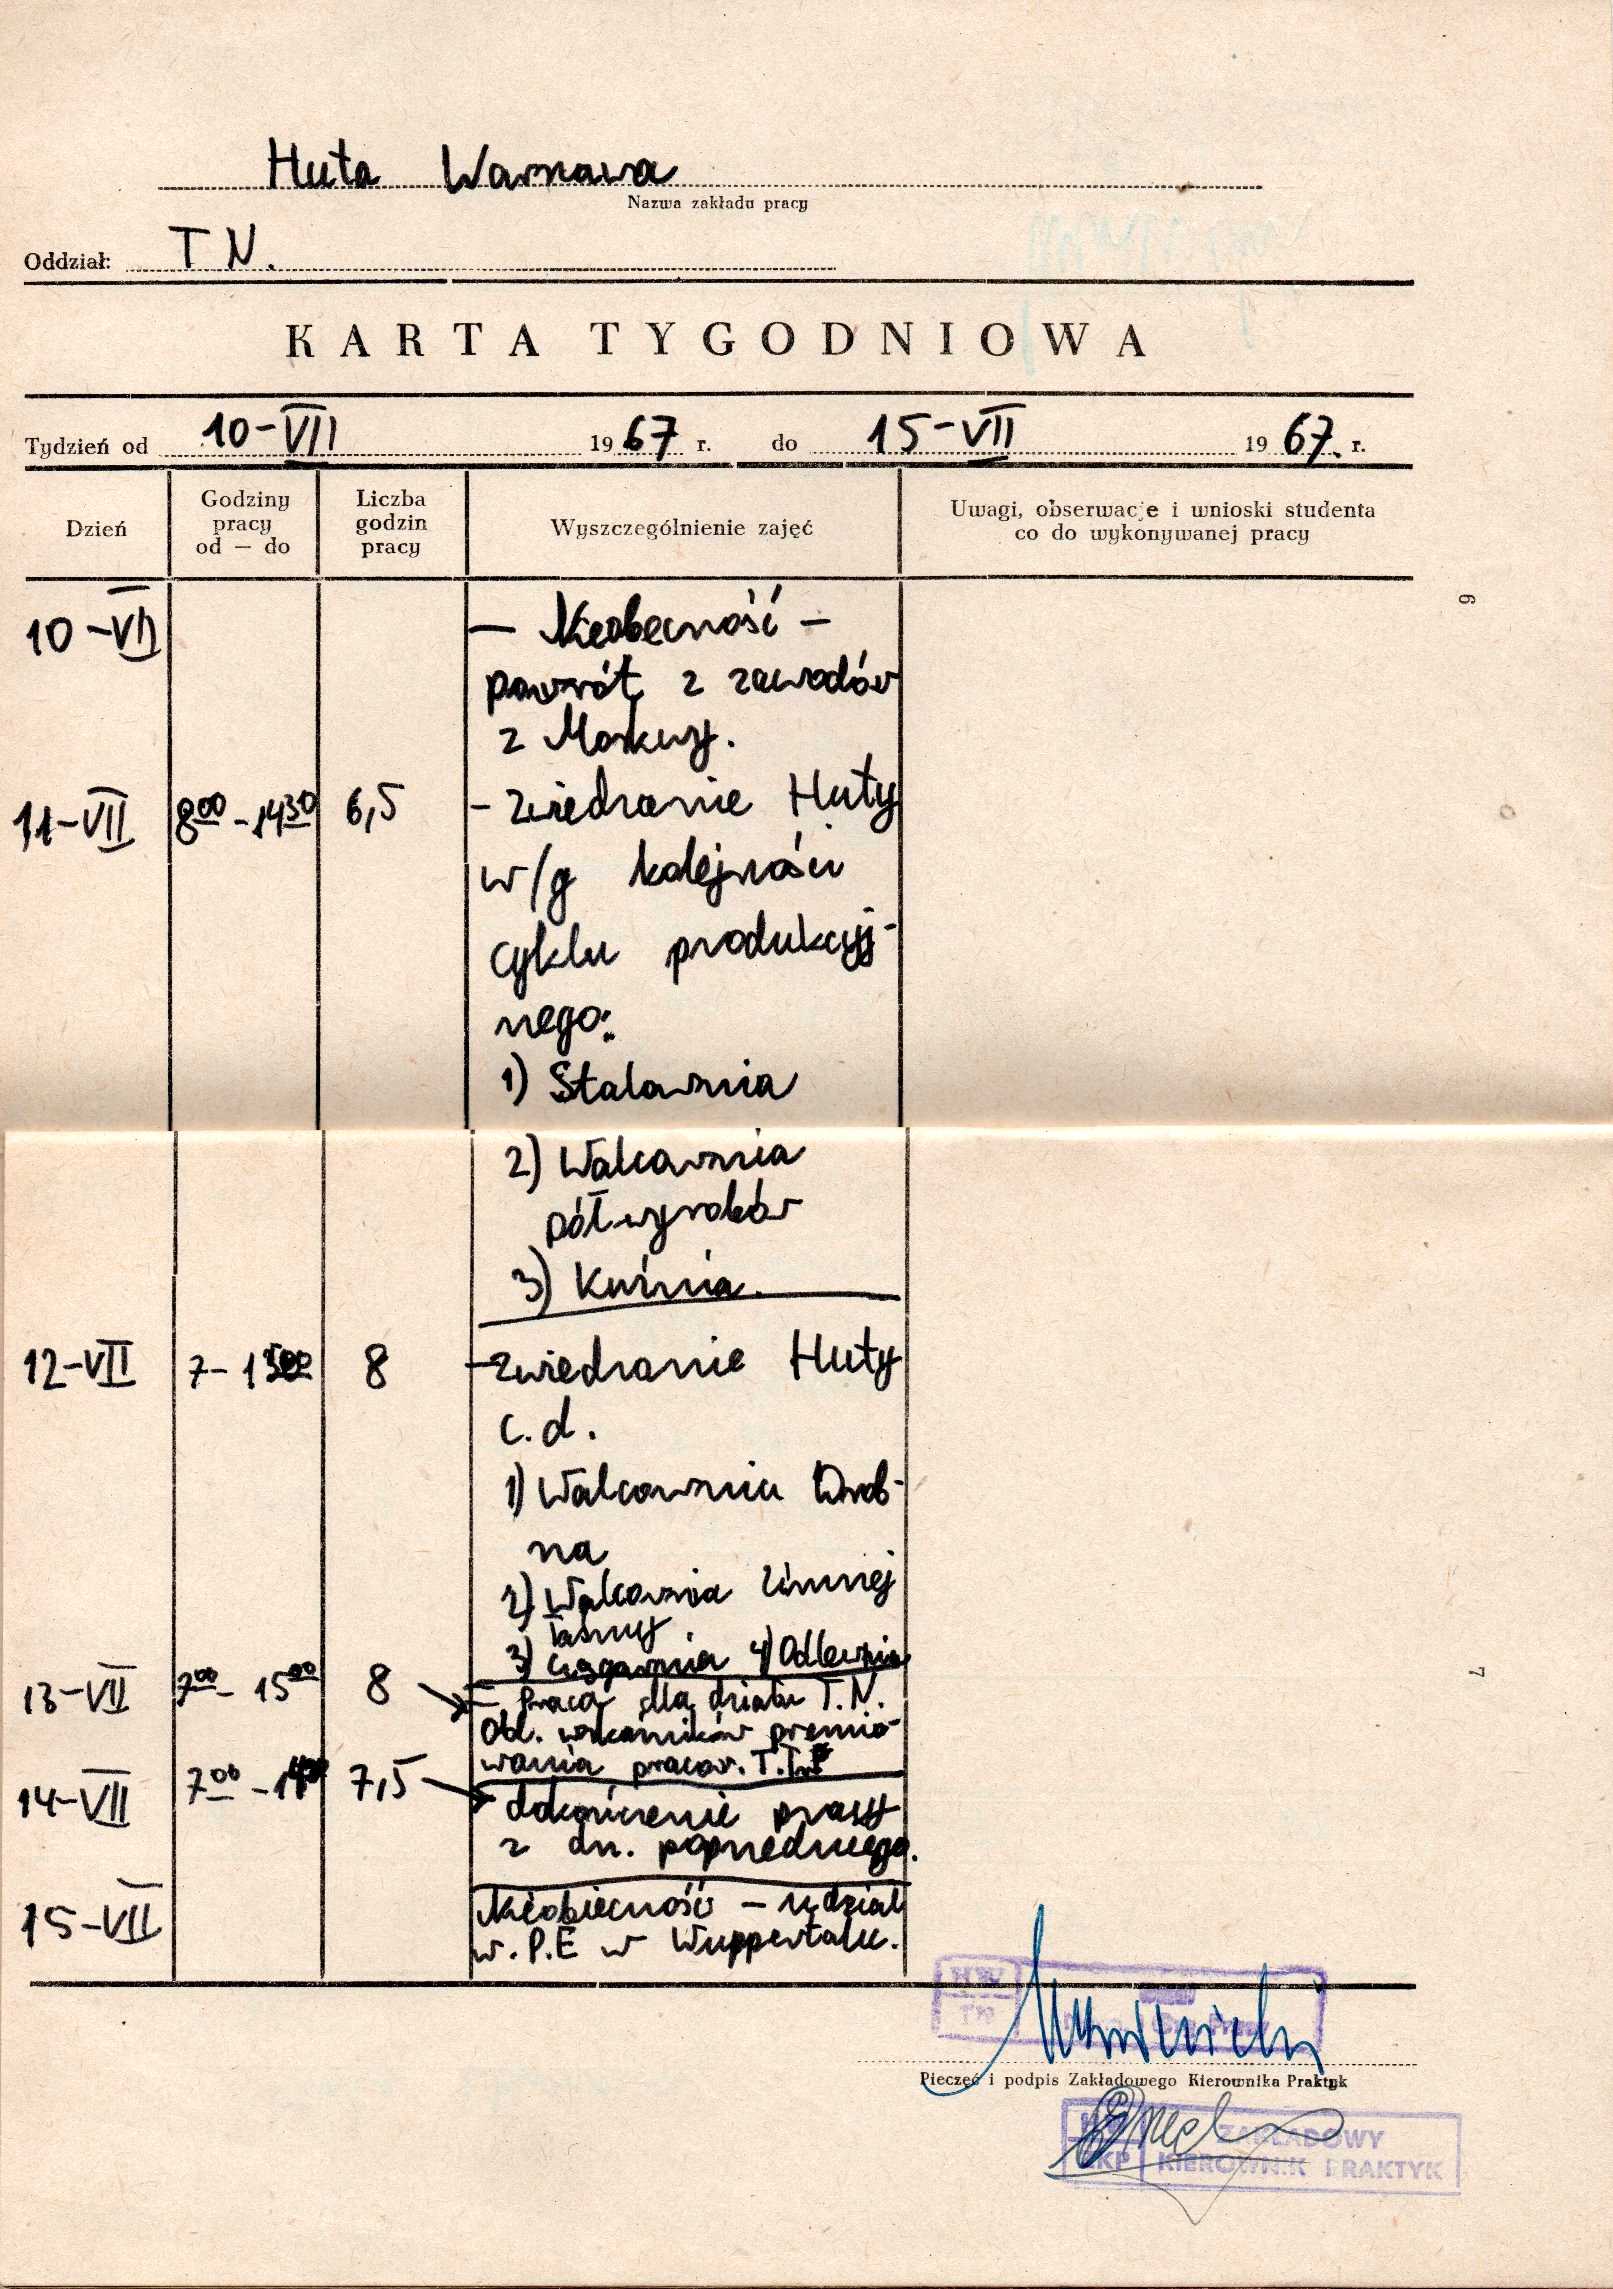 Huta Warszawa
Nazwa zakładu pracy
Oddział: T N.
KARTA TYGODNIOWA
Tydzień od 10-VII 1967 r. do 15-VII 1967. r.
Dzień
Godziny
pracy
od — do
Liczba
godzin
pracy
Wyszczególnienie zajęć
Uwagi, obserwacje i wnioski studenta
co do wykonywanej pracy
6
10-VII — Nieobecność —
powrót z zawodów
z Moskwy.
11-VII 8⁰⁰-14³⁰ 6,5 - Zwiedzanie Huty
w/g kolejności
cyklu produkcyj-
nego:
1) Stalownia
2) Walcownia
półwyrobów
3) Kuźnia.
12-VII 7-15⁰⁰ 8 - Zwiedzanie Huty
c.d.
1) Walcownia Drob-
na
2) Walcownia Zimnej
Taśmy
3) Ciągarnia 4) Odlewnia
13-VII 7⁰⁰-15⁰⁰ 8 - Praca dla działu T.N.
Obl. wskaźników premio-
wania pracow.
7
14-VII 7⁰⁰ 7,5 - dokończenie pracy
z dn. poprzedniego.
15-VII Nieobecność - udział
w. P.E w Wuppertalu.
HW
TN
Pieczęć i podpis Zakładowego Kierownika Praktyk
ZAKŁADOWY
KIEROWNIK PRAKTYK